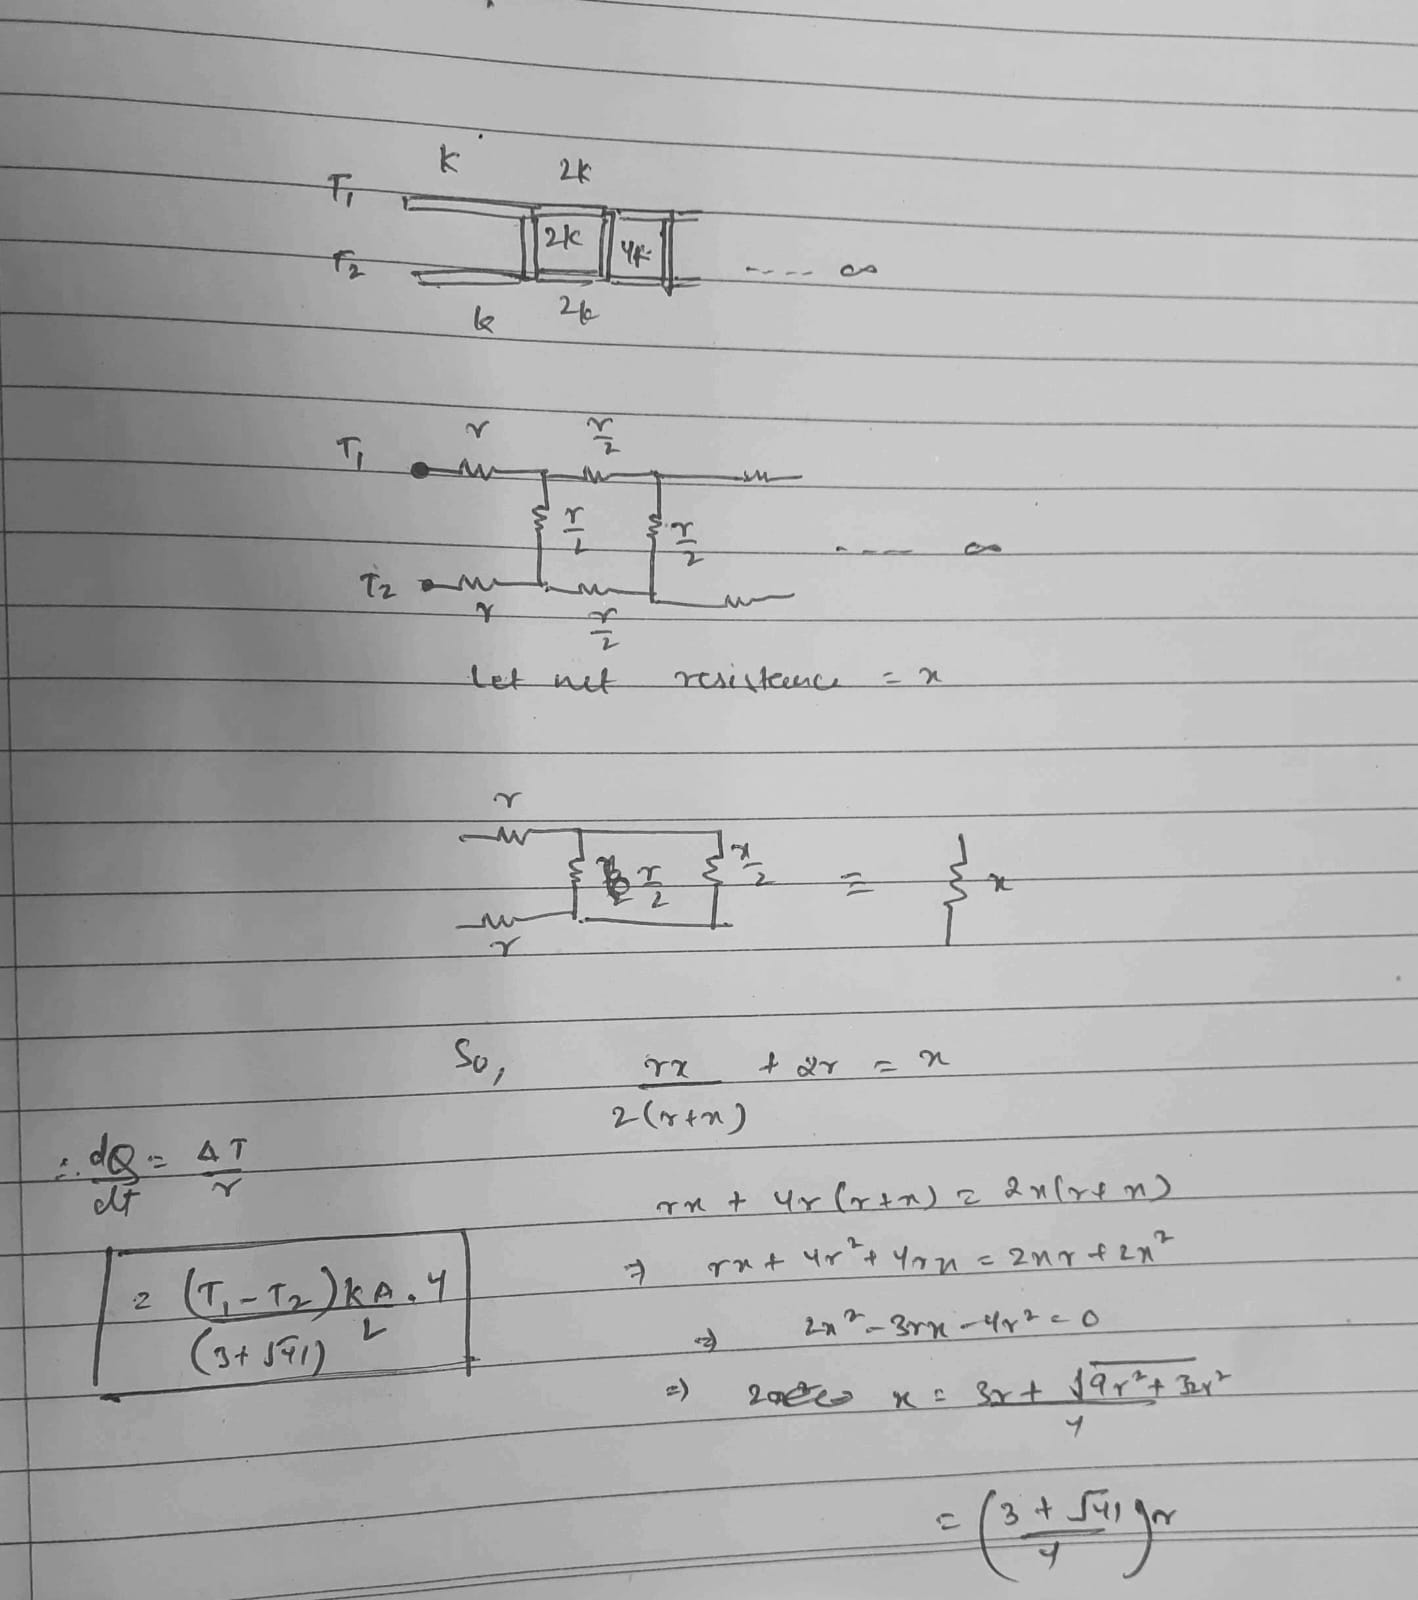 k 2k
T₁
2k 4k
T₂ ---- ∞
k 2k
r r/2
T₁
r/2 r/2
---- ∞
T₂
r r/2
Let net resistance = x
r
r/2 x/2 = x
r
So, rx/2(r+x) + 2r = x
∴ dQ/dt = ΔT/r
rx + 4r(r+x) = 2x(r+x)
= (T₁-T₂)kA.4/(3+√41) L
⇒ rx + 4r² + 4rx = 2xr + 2x²
⇒ 2x² - 3rx - 4r² = 0
⇒ x = 3r + √9r² + 32r²/4
= (3 + √41/4)r